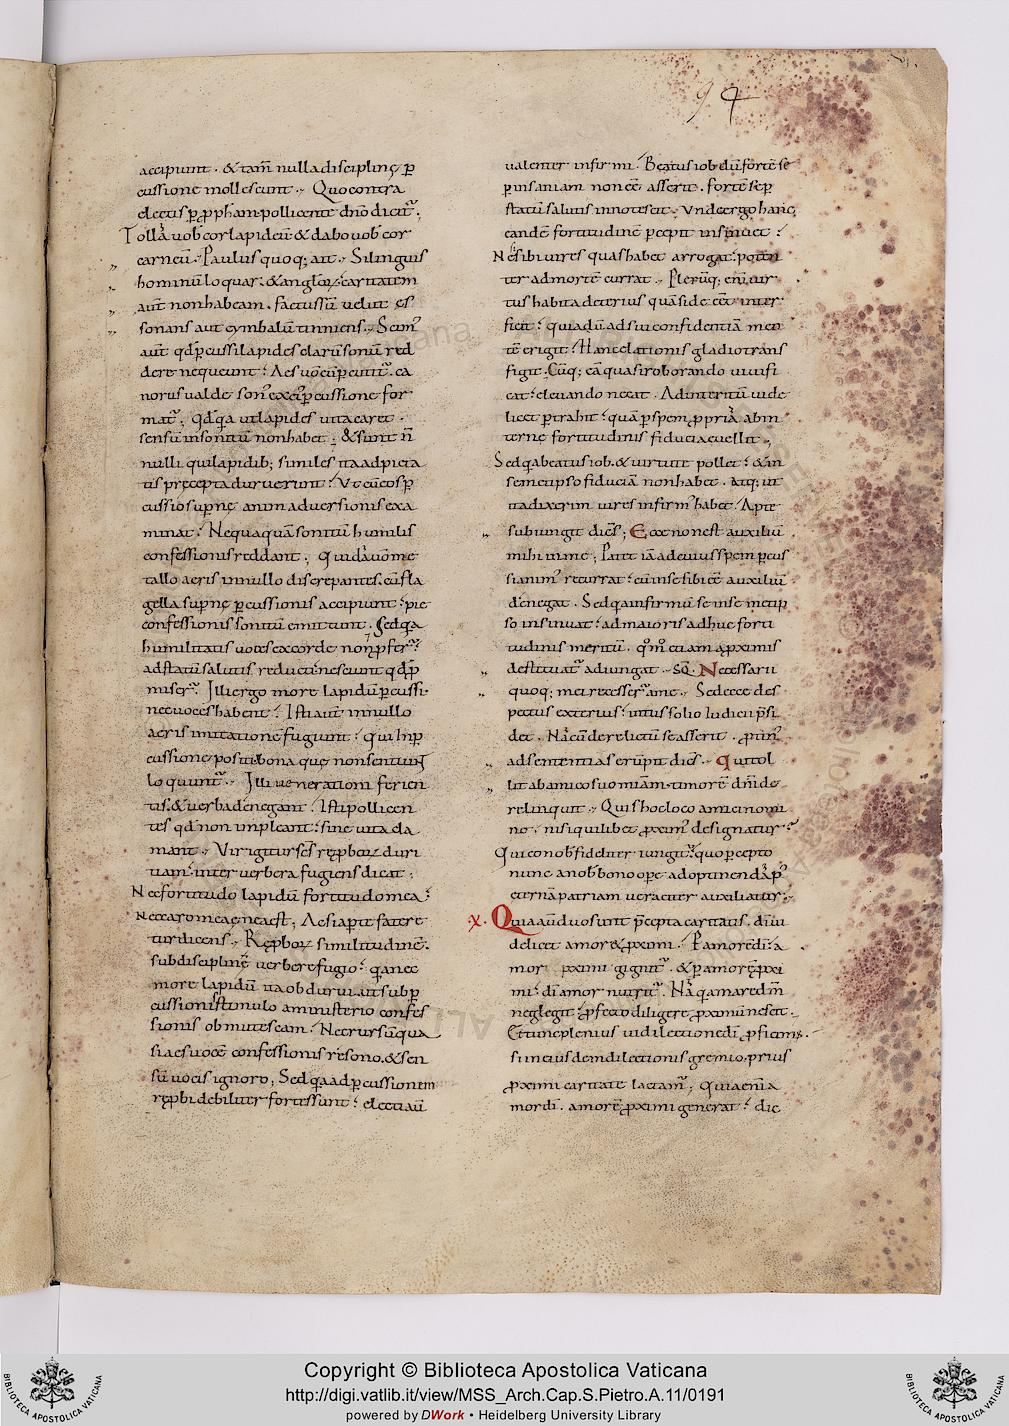 94
accipiunt . & tam̄ nulla discipline p̱
cussione mollescunt ., Quo contra
electis p̱ ꝓph̄am pollicente dn̄o dicit̾ ;
Tollā uob̾ cor lapideū & dabo uob̾ cor
carneū ., Paulus quoq; ait ., Si linguis
hominū loquar . & angloꝝ . caritatem
aut̄ non habeam . factus sū uelut ęs
sonans aut cymbalū tinniens ., Sem̾
aut̄ qd̄ p̱cussi lapides clarū sonū red
dere nequeunt . Aes uo cū p̱cutit̾ . ca
norus ualde son̾ ex ei̾ p̱cussione for
mat̾ ; qd̄ q̄a ut lapides uita caret .
sensū in sonitū non habet ; & sunt n̄
nulli qui lapidib; similes ita ad pieta
tis pręcepta duruerunt . Ut cū eos p̱
cussio supne animaduersionis exa
minat . Nequaquā sonitū humilis
confessionis reddant ; Quidā uo me
tallo aeris in nullo discrepantes . cū fla
gella supnę p̱cussionis accipiunt . pie
confessionis sonitū emittunt . Sed q̄a
humilitatis uoces ex corde non p̱fer̾
ad statū salutis reducti nesciunt qd̄ p̱
miser̾ . Illi ergo more lapidū p̱cussi
nec uoces habent . Isti aut̄ in nullo
aeris imitationē fugiunt . Qui in p̱
cussione positi bona que non sentiunt
loquunt̾ ., Illi uenerationi ferien
tis & uerba denegant . Isti pollicen
tes qd̄ non impleant . sine uita cla
mant ., Vir igitur scs̄ ręphoꝝ duri
tiam inter uerbera fugiens dicat ;
Nec fortitudo lapidū fortitudo mea .
Nec caro mea enea est ; Ac si aꝑte fatere
tur dicens ., Ręproboꝝ similitudinē .
sub disciplinę uerbere fugio . q̄a nec
more lapidū ita obdurui . ut sub p̱
cussionis stimulo a ministerio confes
sionis obmutescam . Nec rursū qua
si aes uocē confessionis resono . & sen
sū uocis ignoro ; Sed q̄a ad p̱cussionem
ręprobi debiliter fortes sunt . electi aū
ualenter infirmi . Beatus iob dū forte se
p̱ insaniam non eē asserit . forte se p̱
statū salutis innotescit . Vnde ergo hanc
candē fortitudinē p̱cepit insinuet .
Ne sibi uires quas habet arroget . poten
ter ad mortē currat ., Plerūq; eni uir
tus habita deterius quā si deēet inter
ficit . quia dū ad sui confidentiā men
tē erigit . Hanc elationis gladio trans
figit . Cūq; eā quasi roborando uiuifi
cat . eleuando necat . Ad interitū uide
licet p̱trahit . quā p̱ spem ꝓpriā ab in
ternę fortitudinis fiducia euellit .,
Sed q̄a beatus iob . & uirtute pollet . & in
semetipso fiduciā non habet . Atq; ut
ita dixerim uires infirm̾ habet . Aꝑte
subiungit dices̄ ; Ecce non est auxiliū
mihi in me ; Patet iā ad cuius spem p̱cus
si anim̾ recurrat . cū in se sibi eē auxiliū
denegat . Sed q̄a infirmū se in semetip
so insinuat . ad maioris adhuc forti
tudinis meritū . qm̄ etiam a ꝓximis
destituat̾ adiungat ., SQ . Necessarii
quoq; mei recesser̾ a me ., Sed ecce des
pectus exterius . intus solio iudicii p̱si
det . Nā cū derelictū se asserit . ꝓtin̾
ad sententias erūpit dices̄ ., Qui tol
lit ab amico suo miam̄ . timorē dn̄i de
relinquit ., Quis hoc loco amici nomi
ne . nisi quilibet ꝓxim̾ designatur .
Qui eo nob̾ fideliter iungit̾ . quo p̱cepto
nunc a nob̾ bono ope̱ ad optinendā p̾
eternā patriam ueraciter auxiliatur .,
.X. Quia aū duo sunt p̄cepta caritatis . di ui
delicet amor & ꝓximi . P amorē di a
mor ꝓximi gignit̾ . & p̱ amorē ꝓxi
mi . di amor nutrit̾ . Nā q amare dm̄
neglegit . ꝓfecto diligere ꝓximū nescit .
Et tunc plenius in dilectione di ꝓficim̾ .
si in eiusdem dilectionis gremio . prius
ꝓximi caritate lactam̾ ; Quia enī a
mor di . amorē ꝓximi generat . dic
Copyright © Biblioteca Apostolica Vaticana
http://digi.vatlib.it/view/MSS_Arch.Cap.S.Pietro.A.11/0191
powered by DWork • Heidelberg University Library
BIBLIOTECA APOSTOLICA VATICANA
BIBLIOTECA APOSTOLICA VATICANA